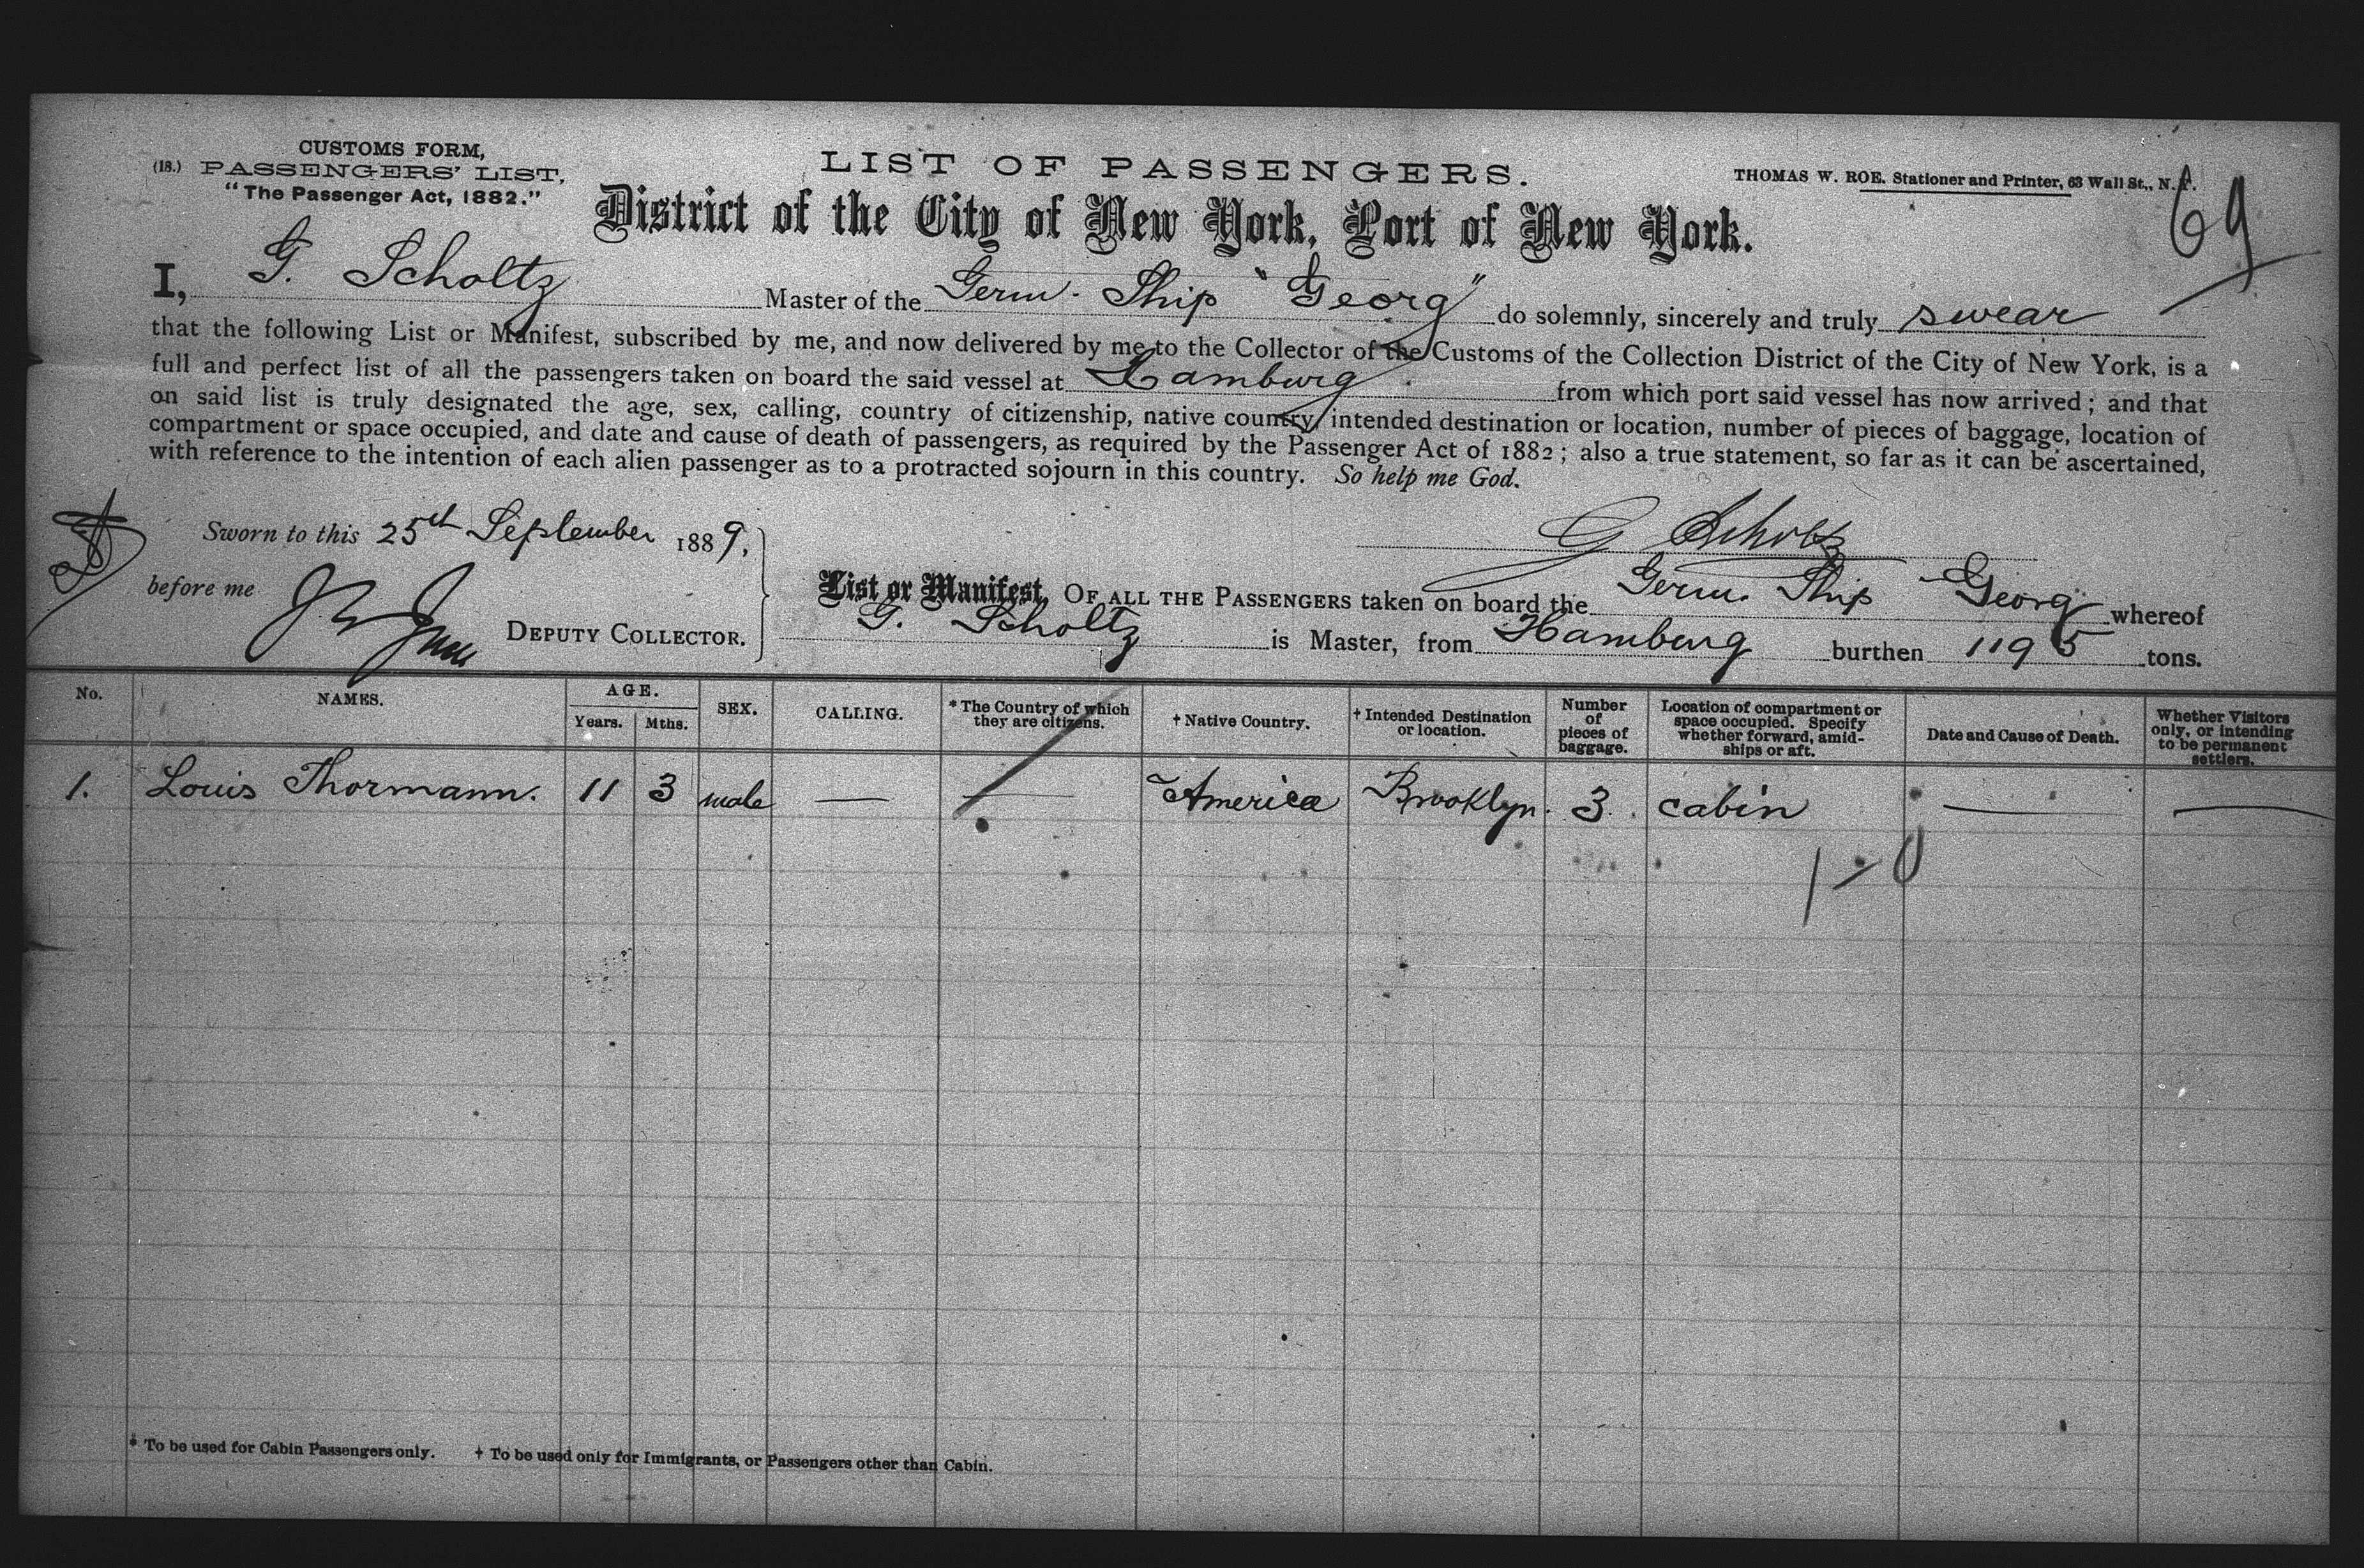 CUSTOMS FORM,
(18.) PASSENGERS' LIST,
"The Passenger Act, 1882."
LIST OF PASSENGERS.
THOMAS W. ROE. Stationer and Printer, 63 Wall St., N.Y.
69
District of the City of New York, Port of New York.
I, G. Scholtz Master of the Germ. Ship "Georg" do solemnly, sincerely and truly swear
that the following List or Manifest, subscribed by me, and now delivered by me to the Collector of the Customs of the Collection District of the City of New York, is a
full and perfect list of all the passengers taken on board the said vessel at Hamburg from which port said vessel has now arrived; and that
on said list is truly designated the age, sex, calling, country of citizenship, native country, intended destination or location, number of pieces of baggage, location of
compartment or space occupied, and date and cause of death of passengers, as required by the Passenger Act of 1882; also a true statement, so far as it can be ascertained,
with reference to the intention of each alien passenger as to a protracted sojourn in this country. So help me God.
Sworn to this 25th September 1889,
G Scholtz
before me
DEPUTY COLLECTOR.
List or Manifest, OF ALL THE PASSENGERS taken on board the Germ. Ship Georg whereof
G. Scholtz is Master, from Hamburg burthen 1195 tons.
No. NAMES. AGE. Years. Mths. SEX. CALLING. * The Country of which they are citizens. † Native Country. † Intended Destination or location. Number of pieces of baggage. Location of compartment or space occupied. Specify whether forward, amid-ships or aft. Date and Cause of Death. Whether Visitors only, or intending to be permanent settlers.
1. Louis Thormann. 11 3 male — — America Brooklyn. 3. cabin — —
* To be used for Cabin Passengers only. † To be used only for Immigrants, or Passengers other than Cabin.